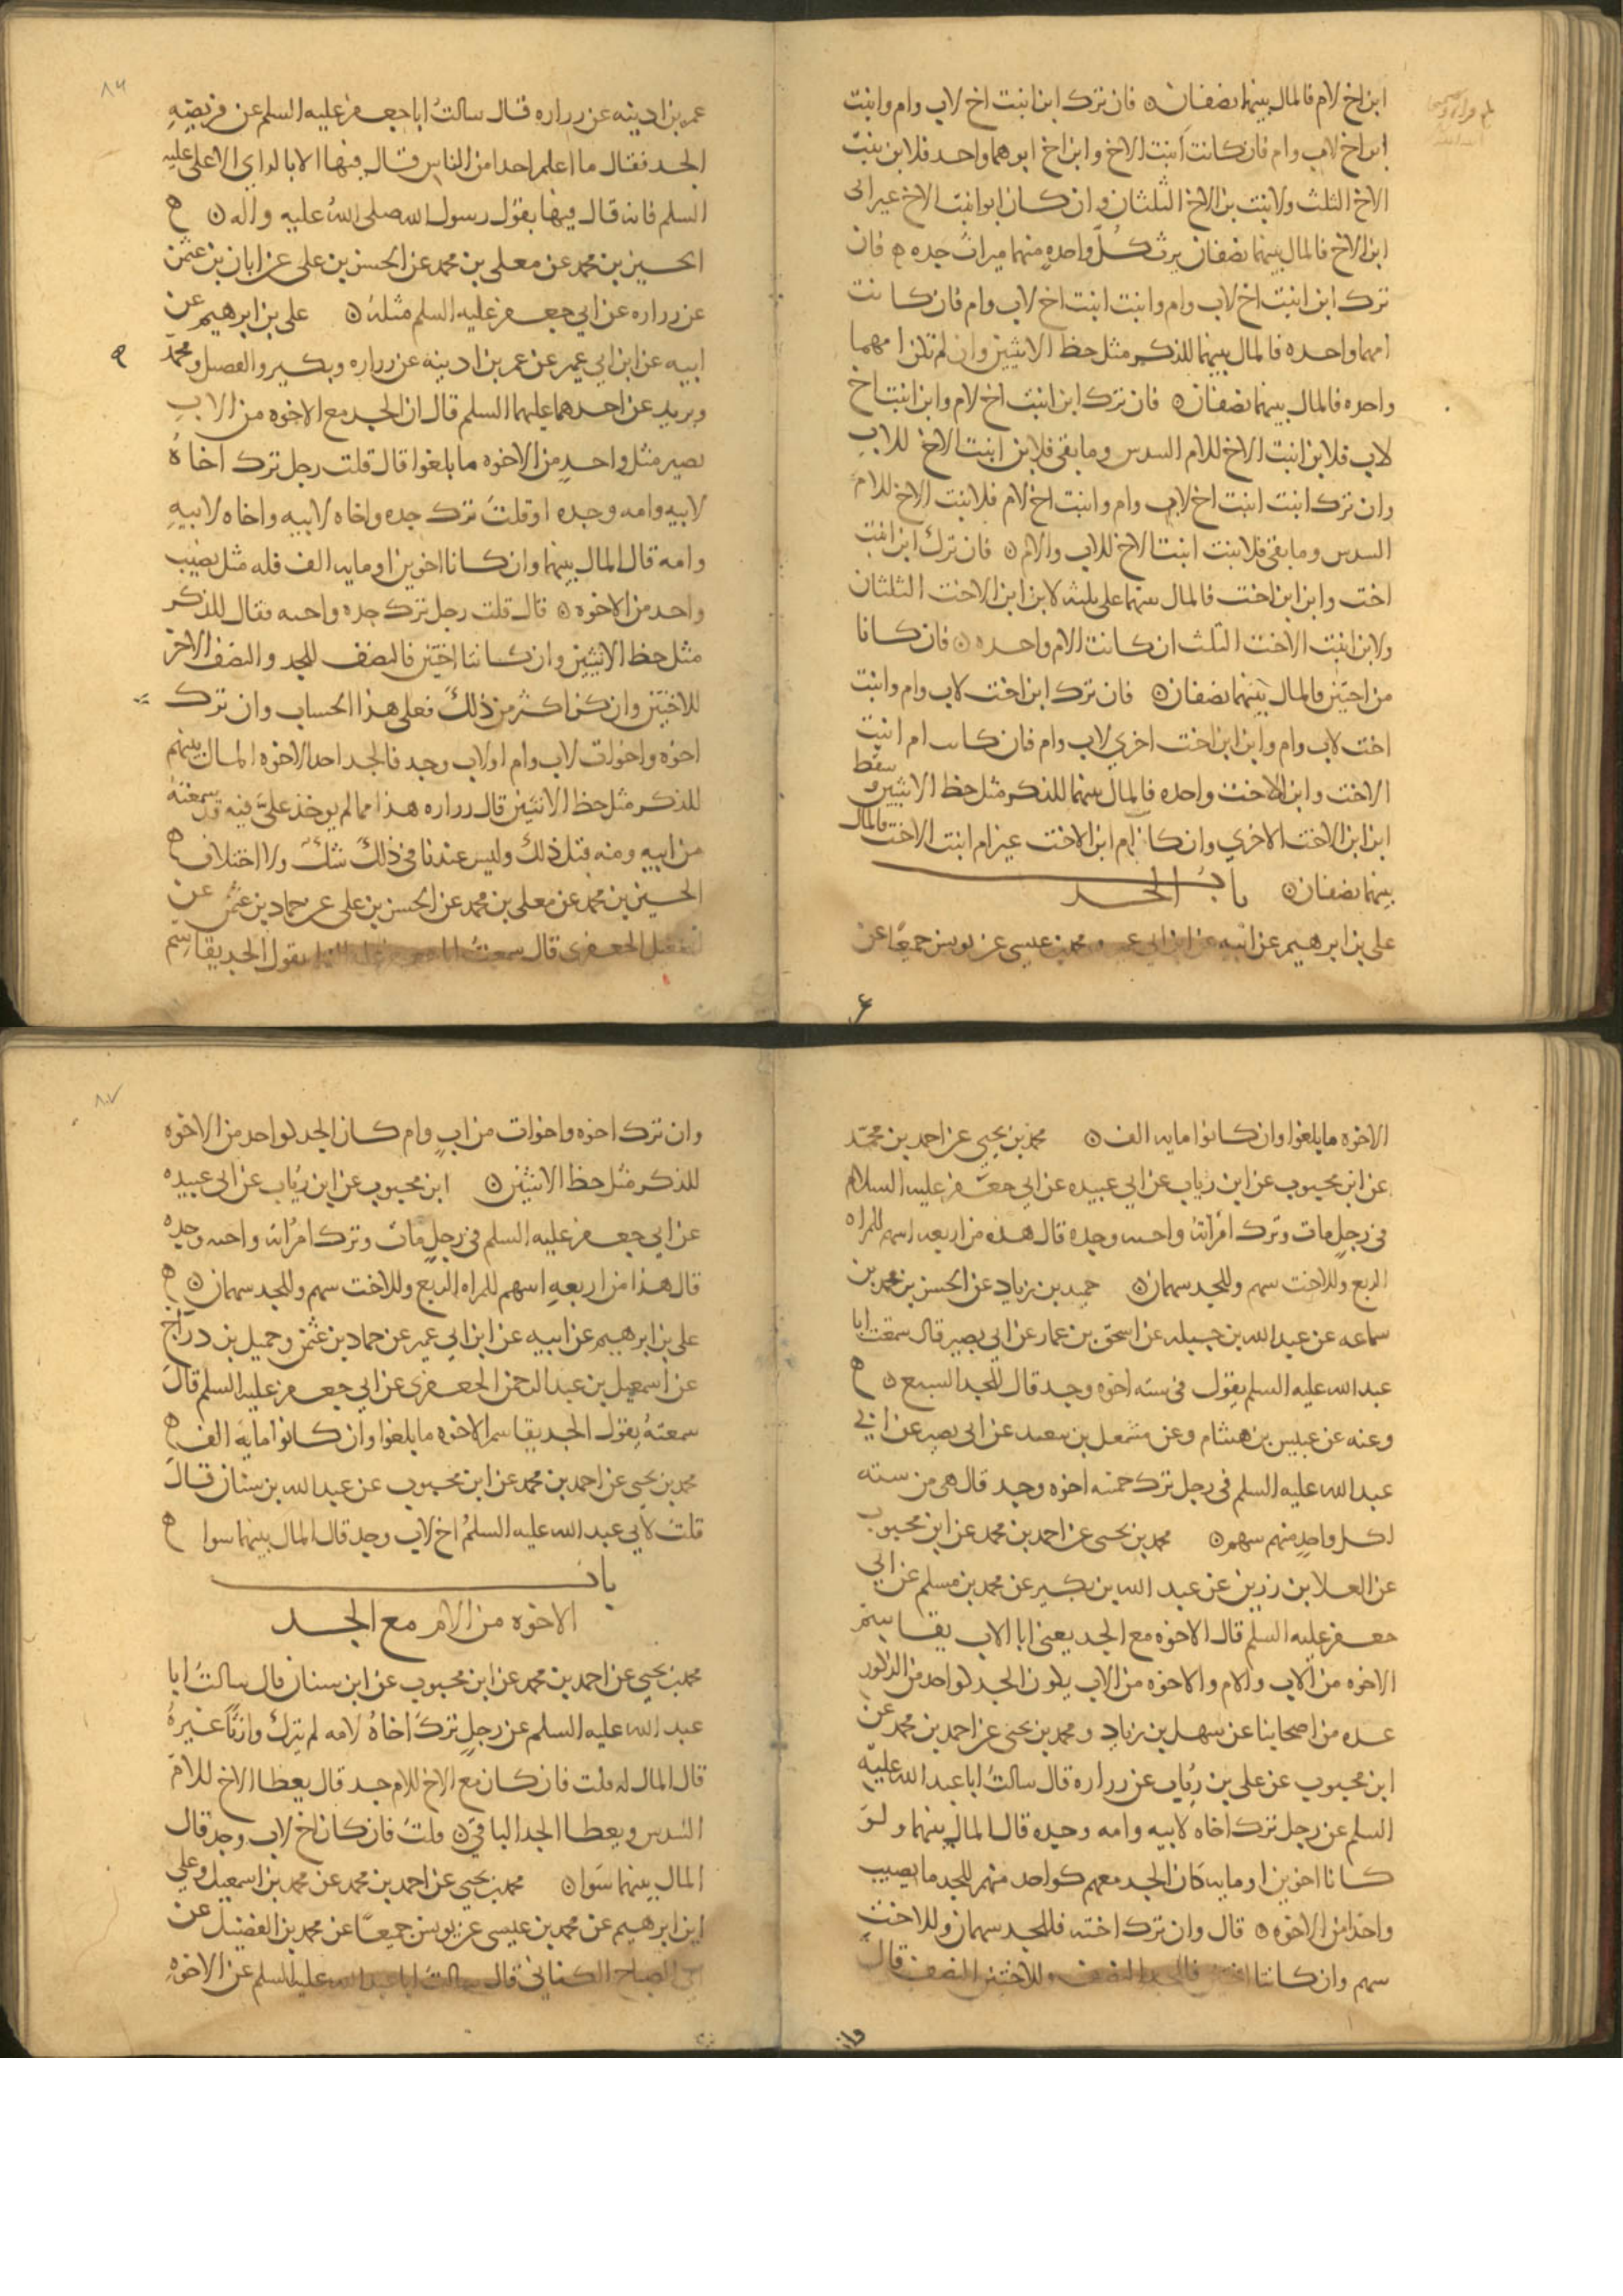 ابن اخ لام فالمال بينهما نصفان ن فان ترك ابن ابنت اخ لاب وام وابنت
ابن اخ لاب وام فان كانت ابنت الاخ وابن اخ ابوهما واحد فلابن بنت
الاخ الثلث ولابنت بن الاخ الثلثان وان كان ابو ابنت الاخ غير ابي
ابن الاخ فالمال بينهما نصفان يرث كل واحده منهما ميراث جده ه فان
ترك ابن ابنت اخ لاب وام وابنت ابنت اخ لاب وام فان كانت
امهما واحده فالمال بينهما للذكر مثل حظ الانثيين وان لم تكن امهما
واحده فالمال بينهما نصفان ن فان ترك ابن ابنت اخ لام وابن ابنت اخ
لاب فلابن ابنت الاخ للام السدس وما بقي فلابن ابنت الاخ للاب
وان ترك ابنت ابنت اخ لاب وام وابنت اخ لام فلابنت الاخ للام
السدس وما بقي فلابنت ابنت الاخ للاب والام ن فان ترك ابن ابنت
اخت وابن ابن اخت فالمال بينهما على ثلثه لابن ابن الاخت الثلثان
ولابن ابنت الاخت الثلث ان كانت الام واحده ن فان كانا
من اختين فالمال بينهما نصفان ن فان ترك ابن اخت لاب وام وابنت
اخت لاب وام وابن ابن اخت اخري لاب وام فان كانت ام ابنت
الاخت وابن الاخت واحده فالمال بينهما للذكر مثل حظ الانثيين وسقط
ابن ابن الاخت الاخري وان كان ام ابن الاخت غير ام ابنت الاخت فالمال
بينهما نصفان ن باب الجد
علي بن ابرهيم عن ابيه عن ابن ابي عمير ومحمد بن عيسى عن يونس جميعا عن
عمر بن اذينه عن زراره قال سالت ابا جعفر عليه السلم عن فريضه
الجد فقال ما اعلم احدا من الناس قال فيها الا بالراي الا علي عليه
السلم فانه قال فيها بقول رسول الله صلى الله عليه واله ن ه
الحسين بن محمد عن معلى بن محمد عن الحسن بن على عن ابان بن عثمن
عن زراره عن ابي جعفر عليه السلم مثله ن علي بن ابرهيم عن
ابيه عن ابن ابي عمير عن عمر بن اذينه عن زراره وبكير والفضيل ومحمد
وبريد عن احدهما عليهما السلم قال ان الجد مع الاخوه من الاب
يصير مثل واحد من الاخوه ما بلغوا قال قلت رجل ترك اخاه
لابيه وامه وجده او قلت ترك جده واخاه لابيه واخاه لابيه
وامه قال المال بينهما وان كانا اخوين او مايه الف فله مثل نصيب
واحد من الاخوه ن قال قلت رجل ترك جده واخته فقال للذكر
مثل حظ الانثيين وان كانتا اختين فالنصف للجد والنصف الاخر
للاختين وان كن اكثر من ذلك فعلى هذا الحساب وان ترك
اخوه واخوات لاب وام او لاب وجد فالجد احد الاخوه المال بينهم
للذكر مثل حظ الانثيين قال زراره هذا مما لم يوخذ علي فيه قد سمعته
من ابيه ومنه قبل ذلك وليس عندنا في ذلك شك ولا اختلاف ه
الحسين بن محمد عن معلى بن محمد عن الحسن بن على عن حماد بن عثمن عن
اسمعيل الجعفري قال سمعت ابا جعفر عليه السلم يقول الجد يقاسم
الاخوه ما بلغوا وان كانوا مايه الف ن محمد بن يحيي عن احمد بن محمد
عن ابن محبوب عن ابن رياب عن ابي عبيده عن ابي جعفر عليه السلام
في رجل مات وترك امراته واخته وجده قال هذه من اربعه اسهم للمراه
الربع وللاخت سهم وللجد سهمان ن حميد بن زياد عن الحسن بن محمد بن
سماعه عن عبد الله بن جبله عن اسحق بن عمار عن ابي بصير قال سمعت ابا
عبد الله عليه السلم يقول في سته اخوه وجد قال للجد السبع ن ه
وعنه عن عبيس بن هشام وعن مشمعل بن سعد عن ابي بصير عن ابي
عبد الله عليه السلم في رجل ترك خمسه اخوه وجد قال هي من سته
لكل واحد منهم سهم ن محمد بن يحيى عن احمد بن محمد عن ابن محبوب
عن العلا بن رزين عن عبد الله بن بكير عن محمد بن مسلم عن ابي
جعفر عليه السلم قال الاخوه مع الجد يعني ابا الاب يقاسم
الاخوه من الاب والام والاخوه من الاب يكون الجد كواحد من الذكور
عده من اصحابنا عن سهل بن زياد ومحمد بن يحيى عن احمد بن محمد عن
ابن محبوب عن علي بن رياب عن زراره قال سالت ابا عبد الله عليه
السلم عن رجل ترك اخاه لابيه وامه وجده قال المال بينهما ولو
كانا اخوين او مايه كان الجد معهم كواحد منهم للجد ما يصيب
واحدا من الاخوه ن قال وان ترك اخته فللجد سهمان وللاخت
سهم وان كانتا اختين فللجد النصف وللاختين النصف قال
وان ترك اخوه واخوات من اب وام كان الجد كواحد من الاخوه
للذكر مثل حظ الانثيين ن ابن محبوب عن ابن رياب عن ابي عبيده
عن ابي جعفر عليه السلم في رجل مات وترك امراته واخته وجده
قال هذا من اربعه اسهم للمراه الربع وللاخت سهم وللجد سهمان ن ه
علي بن ابرهيم عن ابيه عن ابن ابي عمير عن حماد بن عثمن وجميل بن دراج
عن اسمعيل بن عبد الرحمن الجعفري عن ابي جعفر عليه السلم قال
سمعته يقول الجد يقاسم الاخوه ما بلغوا وان كانوا مايه الف ه
محمد بن يحيى عن احمد بن محمد عن ابن محبوب عن عبد الله بن سنان قال
قلت لابي عبد الله عليه السلم اخ لاب وجد قال المال بينهما سوا ه
باب
الاخوه من الام مع الجد
محمد بن يحيى عن احمد بن محمد عن ابن محبوب عن ابن سنان قال سالت ابا
عبد الله عليه السلم عن رجل ترك اخاه لامه لم يترك وارثا غيره
قال المال له قلت فان كان مع الاخ للام جد قال يعطا الاخ للام
السدس ويعطا الجد الباقي ن قلت فان كان اخ لاب وجد قال
المال بينهما سوا ن محمد بن يحيى عن احمد بن محمد عن محمد بن اسمعيل وعلي
ابن ابرهيم عن محمد بن عيسى عن يونس جميعا عن محمد بن الفضيل عن
ابي الصباح الكناني قال سالت ابا عبد الله عليه السلم عن الاخوه